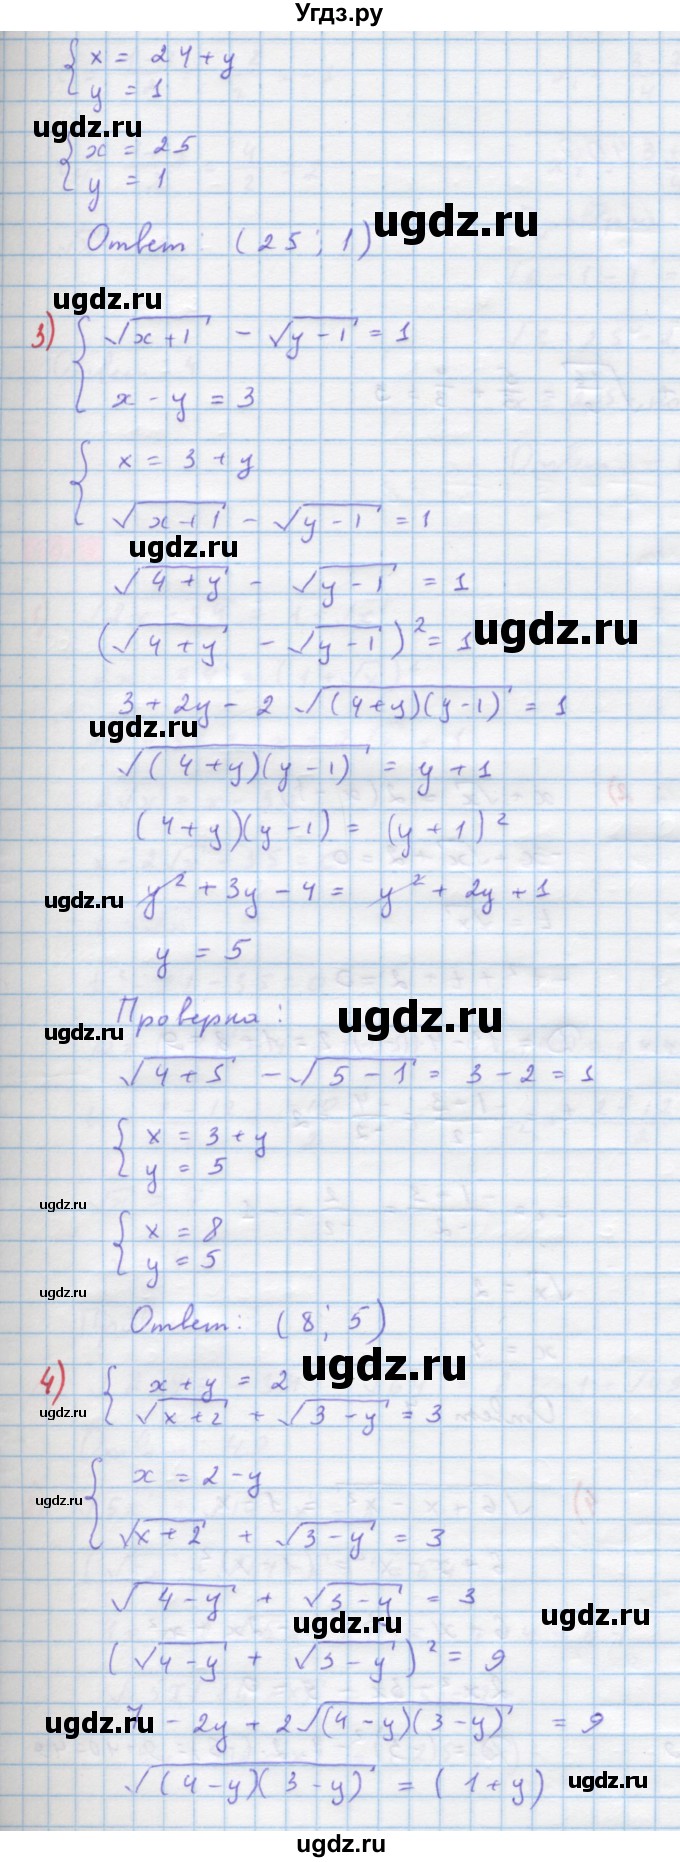 Угдз.ру
{ x = 24 + y
y = 1
ugdz.ru
{ x = 25
y = 1
ugdz.ru
Ответ: (25; 1)
ugdz.ru
3) { √(x+1) - √(y-1) = 1
x - y = 3
{ x = 3 + y
√(x+1) - √(y-1) = 1
ugdz.ru
√(4+y) - √(y-1) = 1
ugdz.ru
(√(4+y) - √(y-1))² = 1
3 + 2y - 2√((4+y)(y-1)) = 1
ugdz.ru
√((4+y)(y-1)) = y + 1
(4+y)(y-1) = (y+1)²
ugdz.ru
y² + 3y - 4 = y² + 2y + 1
y = 5
Проверка:
ugdz.ru
ugdz.ru
√(4+5) - √(5-1) = 3 - 2 = 1
{ x = 3 + y
y = 5
ugdz.ru
{ x = 8
y = 5
ugdz.ru
Ответ: (8; 5)
ugdz.ru
4) { x + y = 2
√(x+2) + √(3-y) = 3
ugdz.ru
{ x = 2 - y
ugdz.ru
√(x+2) + √(3-y) = 3
√(4-y) + √(3-y) = 3
ugdz.ru
ugdz.ru
(√(4-y) + √(3-y))² = 9
7 - 2y + 2√((4-y)(3-y)) = 9
ugdz.ru
√((4-y)(3-y)) = (1+y)
ugdz.ru
ugdz.ru